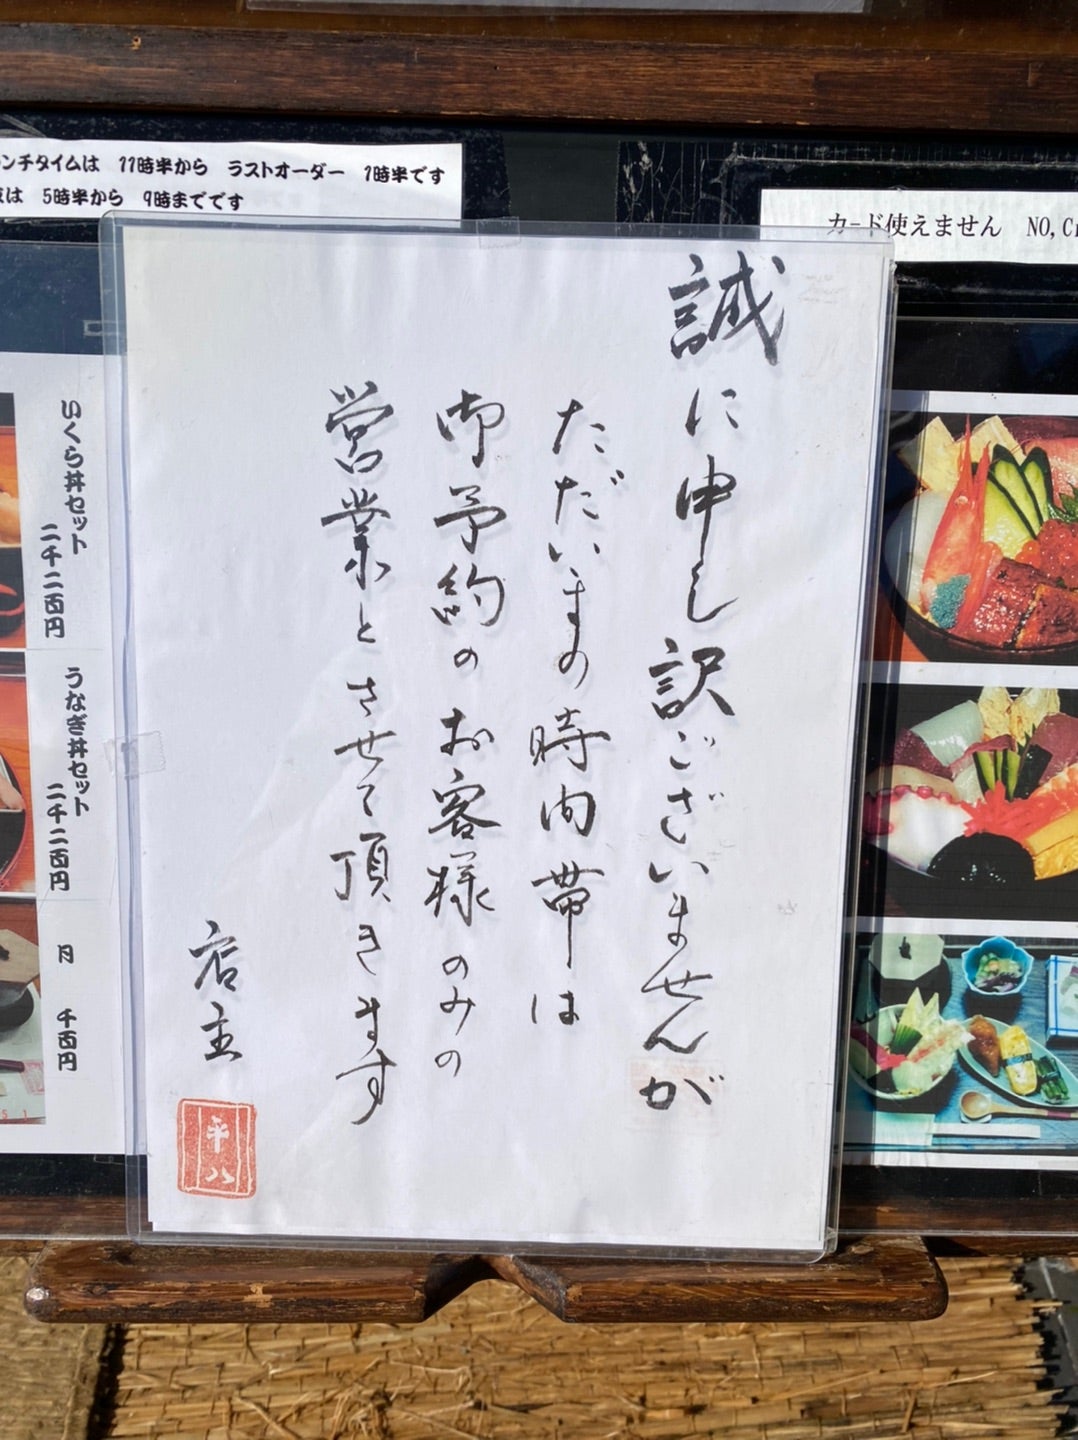 ンチタイムは 11時半から ラストオーダー 1時半です
は 5時半から 9時までです
カード使えません NO,C
誠に申し訳ございませんが
ただいまの時間帯は
御予約のお客様のみの
営業とさせて頂きます
店主
平八
いくら丼セット
二千二百円
うなぎ丼セット
二千二百円
月 千百円